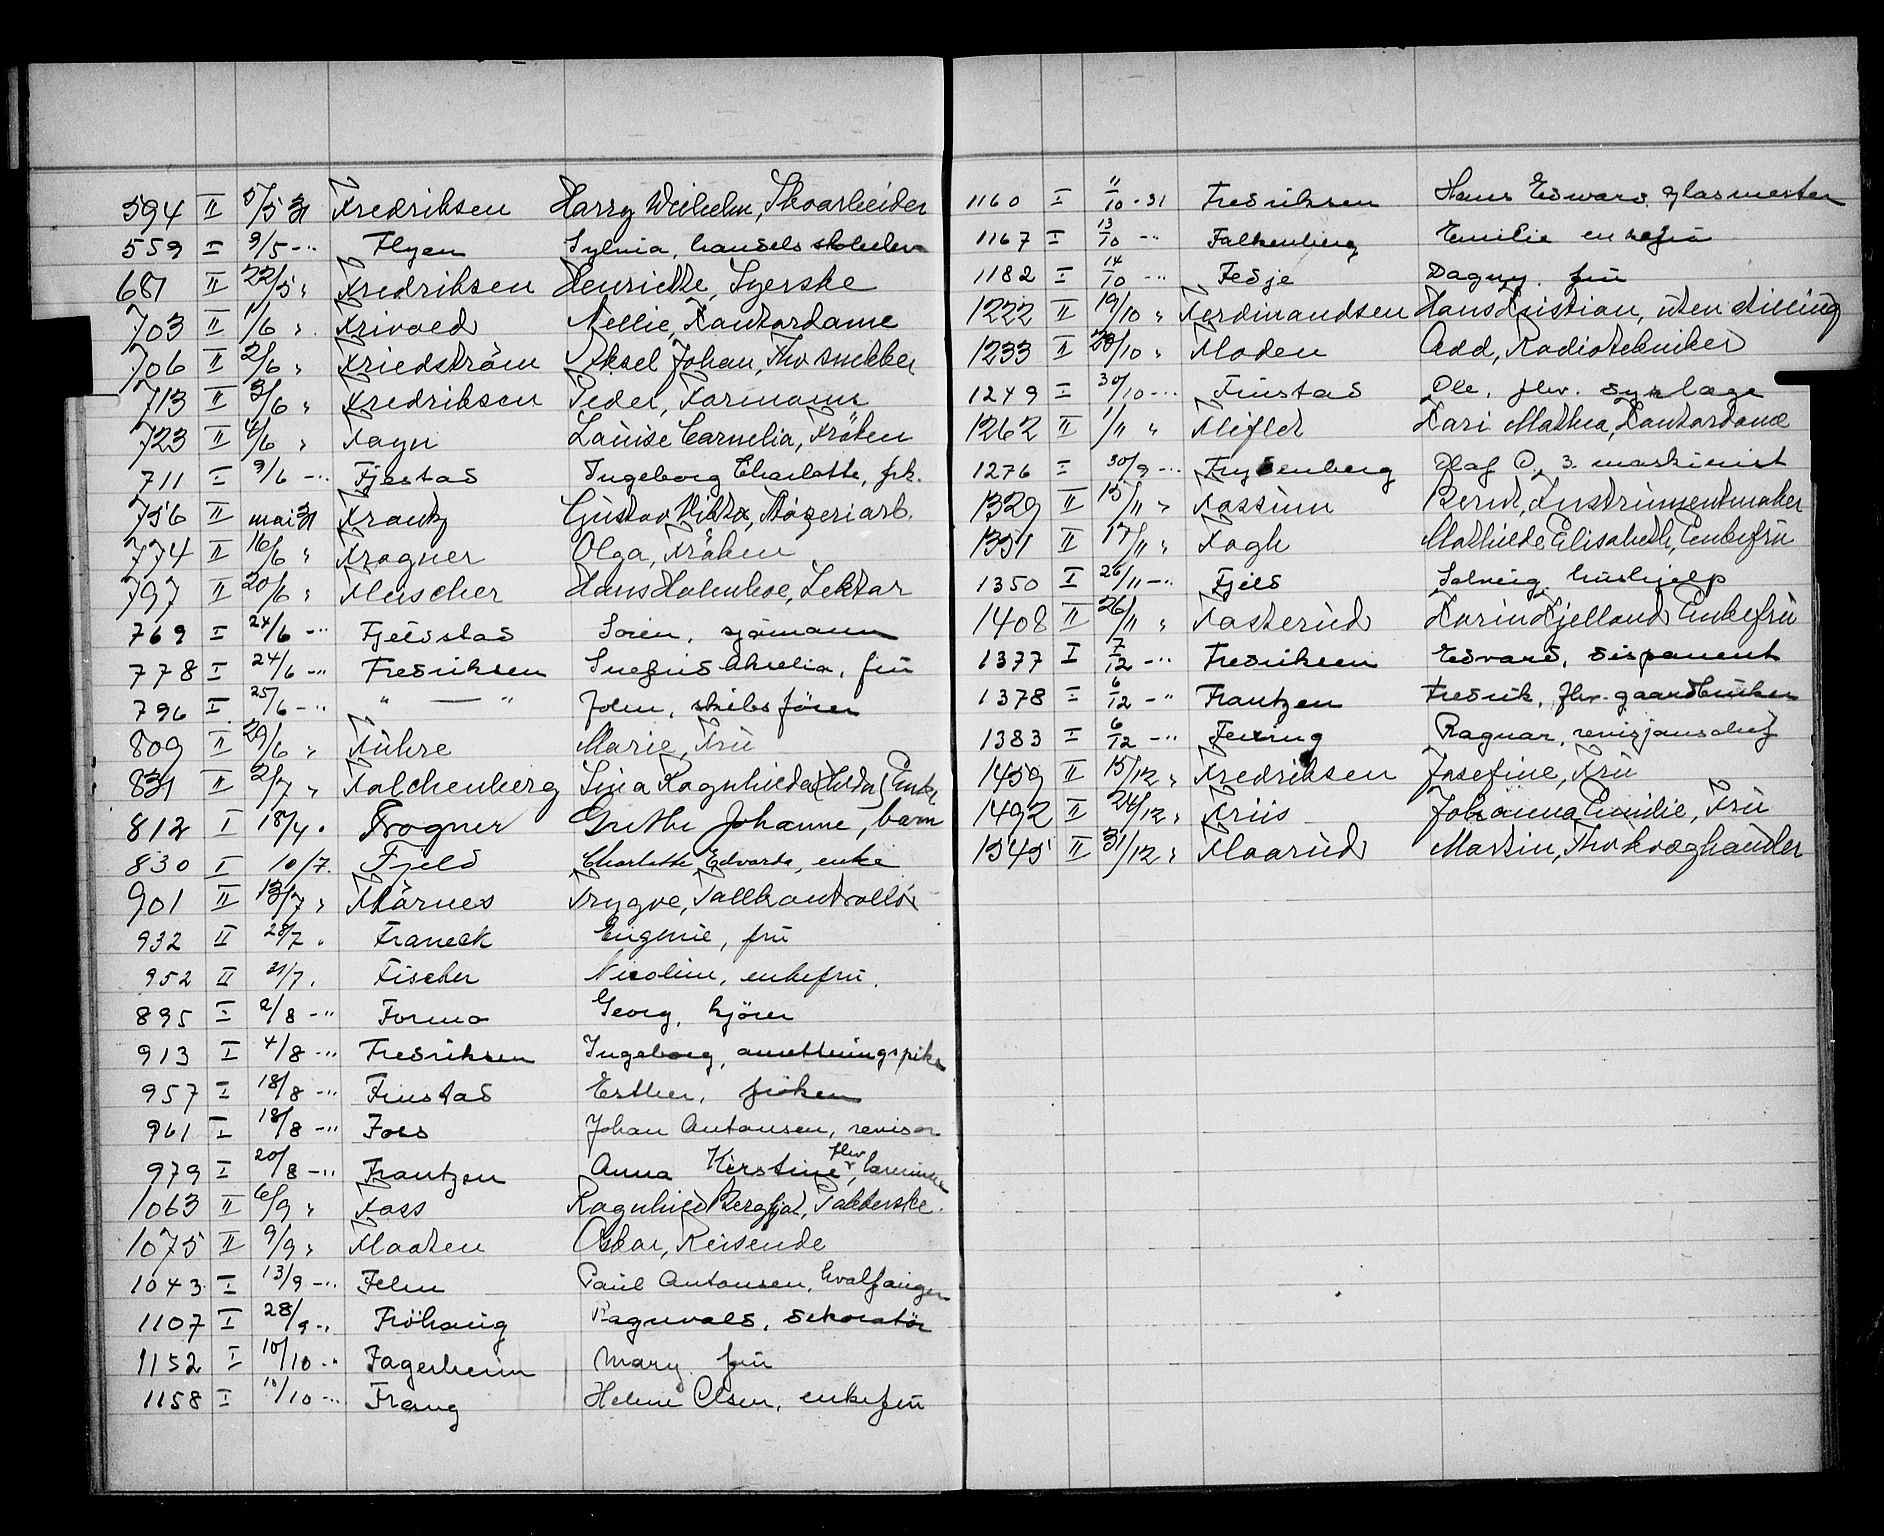 594 II 5/5 31 Fredriksen Harry Wilhelm, Skoarbeider
559 I 9/5 -" Flyen Sylvia, handels
687 II 22/5 " Fredriksen Henriette, Syerske
703 II 1/6 " Frivold Nellie, Kontordame
706 II 2/6 " Friedström Aksel Johan, Fhv snekker
713 II 3/6 " Fredriksen Peder, Formann
723 II 4/6 " Fagn Louise Cornelia, Fröken
711 I 9/6 -" Fjestad Ingeborg Charlotte, frk.
756 II mai 31 Frantz Gustav Viktor,
774 II 16/6 " Frogner Olga, Fröken
797 II 20/6 " Fleischer Hans Holmboe, Lektor
769 I 24/6 -" Fjeldstad Sören, sjömann
778 I 24/6 -" Fredriksen Aurelia, fru
796 I 25/6 -" " — " John, skibsförer
809 II 29/6 " Führe Marie, Fru
831 II 2/7 " Falchenberg Lina Ragnhilda (Hilda) Enke
812 I 18/4 " Frogner Grethe Johanne, barn
830 I 10/7. Fjeld Charlotte Edvarda, enke
901 II 13/7 " Flårnes Trygve, Tollkontrollör
932 II 28/7 " Franeck Eugenie, fru
952 II 31/7 " Fischer Nicoline, enkefru.
895 I 2/8 -" Formo Georg, kjörer
913 I 4/8 -" Fredriksen Ingeborg, anretningspike
957 I 18/8 -" Finstad Esther, fröken
961 I 18/8 -" Foss Johan Antonsen, revisor
979 I 20/8 -" Frantzen Anna Kirstine, fhv
1063 II 6/9 " Foss Ragnhild Bergljot,
1075 II 9/9 " Flaaten Oskar, Reisende
1043 I 13/9 -" Felm Paul Antonsen, hvalfanger
1107 I 28/9 -" Fröhaug Ragnvald, dekoratör
1152 I 10/10 -" Fagerheim Mary fru
1158 I 11/10 -" Frang Helene Olsen, enkefru
1160 I 11/10 -31 Fredriksen Hans Edward, glasmester
1167 I 13/10 -" Falkenberg Emilie enkefru
1182 I 14/10 -" Fedje Dagny, fru
1222 II 19/10 " Ferdinandsen Hans Kristian, uten stilling
1233 II 20/10 " Floden Odd, Radiotekniker
1249 I 30/10 -" Finstad Ole, fhv. dyrlæge
1262 II 1/11 " Fliflet Kari Mathea, Kontordame
1276 I 30/9 -" Frydenberg Olaf O, 3. maskinist
1329 II 15/11 " Fossum Bernt, Instrumentmaker
1351 II 17/11 " Fogh Mathilde Elisabeth, Enkefru
1350 I 26/11 -" Fjeld Solveig, hushjelp
1408 II 26/11 " Fosterud Karin Kjelland Enkefru
1377 I 7/12 -" Fredriksen Edvard, disponent
1378 I 6/12 -" Frantzen Fredrik, fhv. gaardbruker
1383 I 6/12 -" Feiring Ragnar, revisjonschef
1459 II 15/12 " Fredriksen Josefine, Fru
1492 II 24/12 " Friis Johanna Emilie, Fru
1545 II 31/12 " Flaarud Martin, Fhv kvæghandler